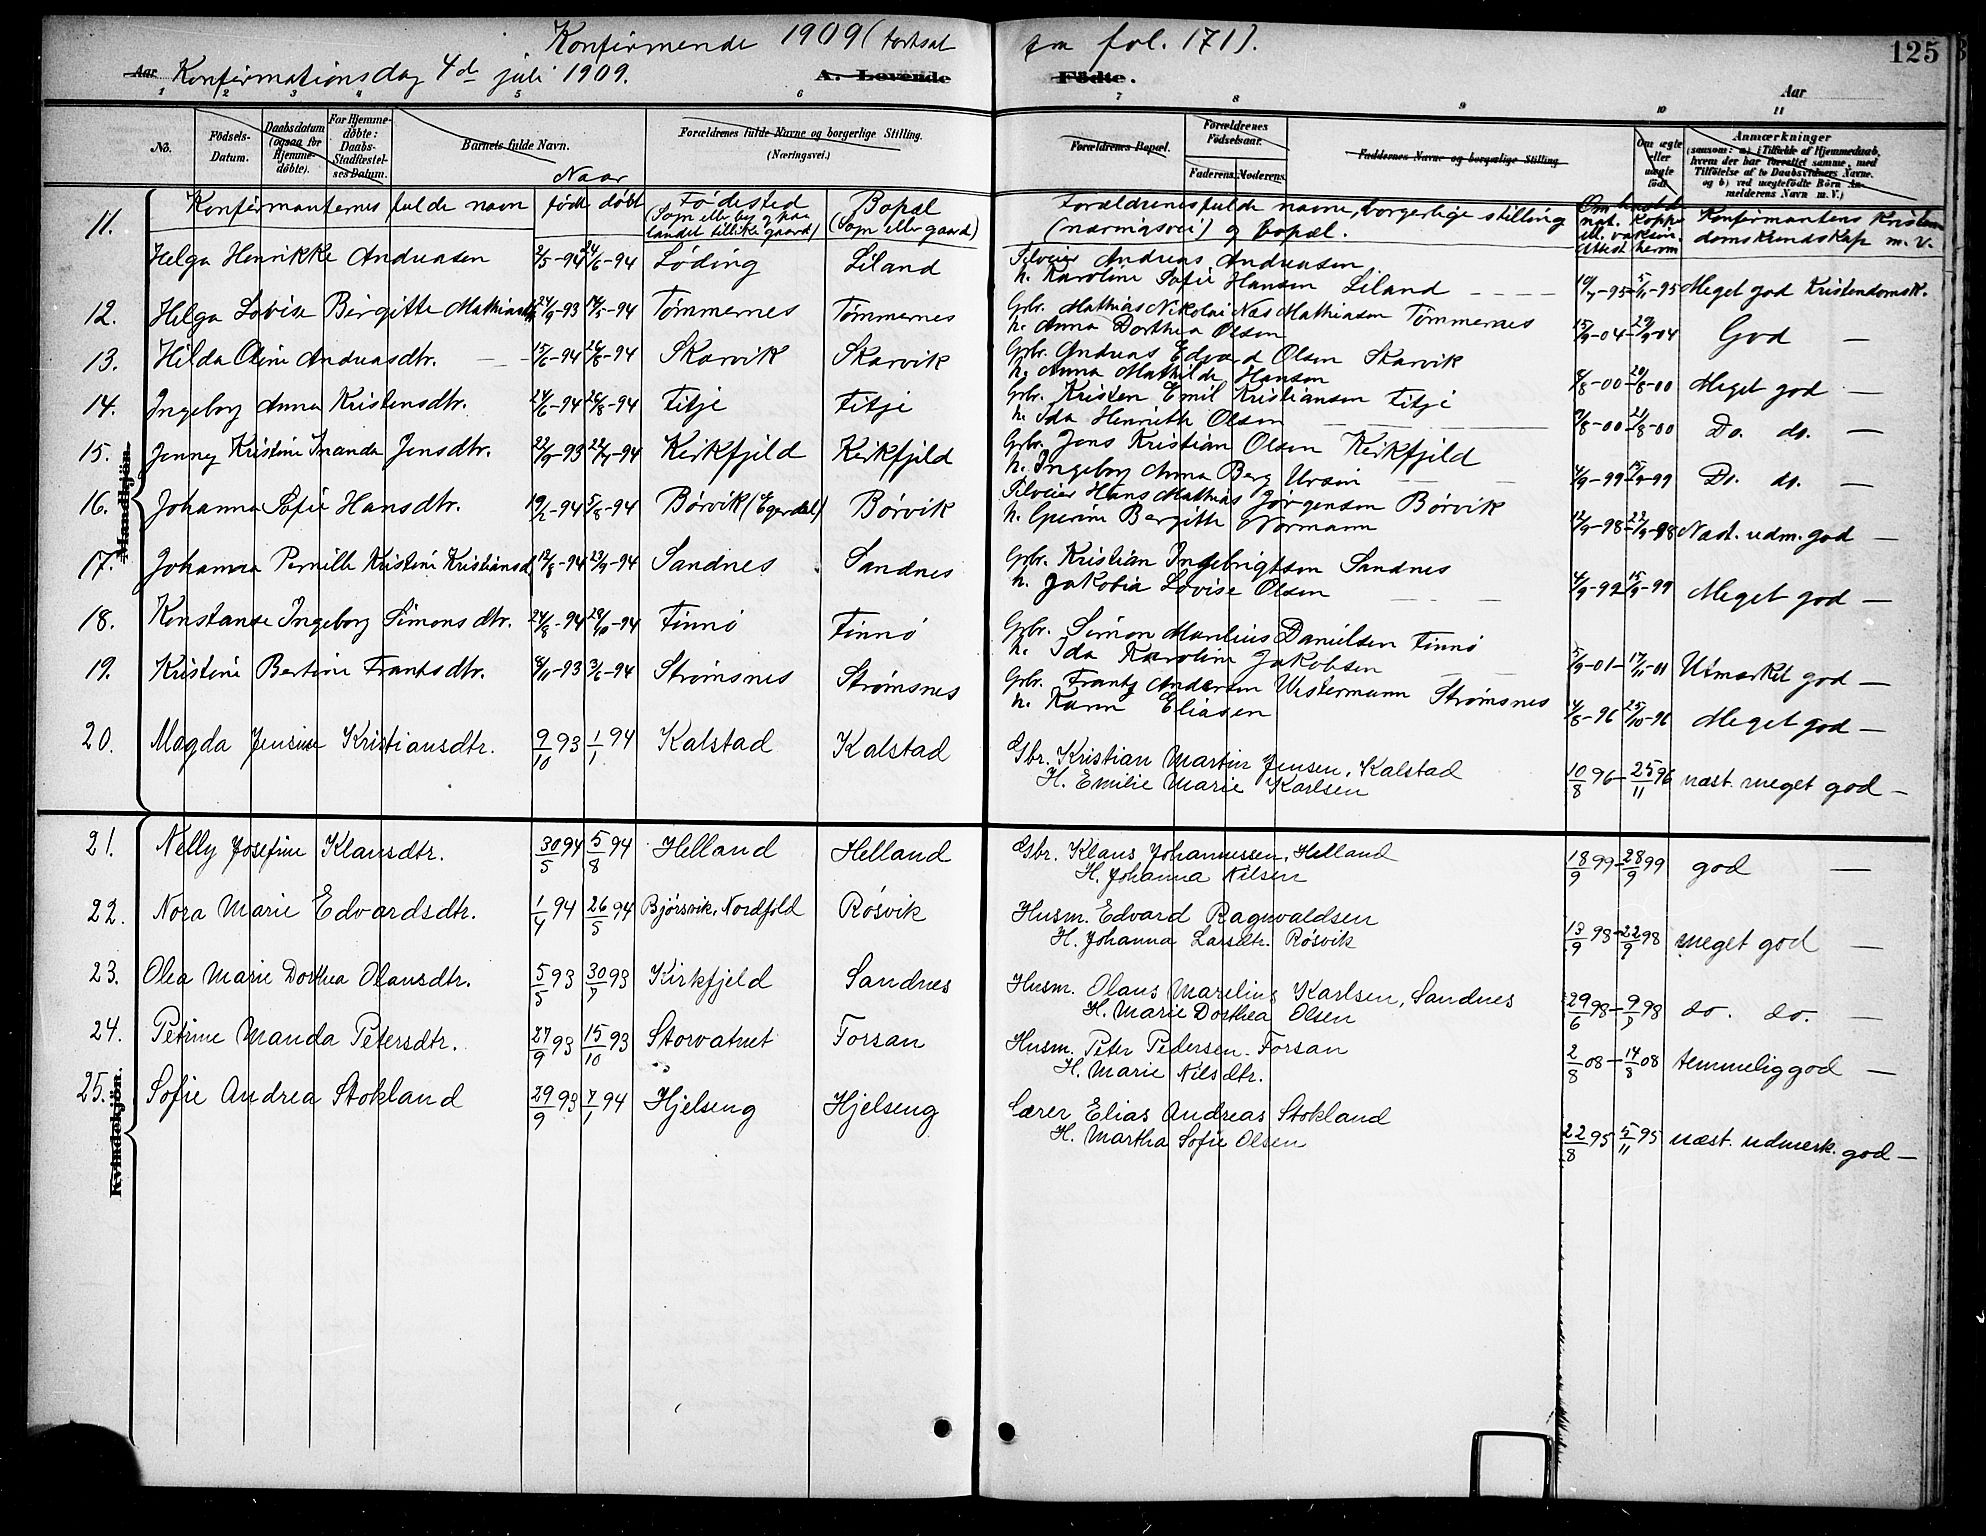 Konfirmende 1909 (fortsat fra fol. 171).
125
Aar Konfirmationsdag 4de juli 1909. A. Levende Födte. Aar
1 2 3 4 5 6 7 8 9 10 11
No. Födsels-Datum. Daabsdatum (ogsaa for Hjemme-döbte). For Hjemme-döbte: Daabs-Stadfæstel-ses Datum. Barnets fulde Navn. Forældrenes fulde Navne og borgerlige Stilling. (Næringsvei.) Forældrenes Bopæl. Forældrenes Födselsaar. Faderens. Moderens. Faddernes Navne og borgerlige Stilling Om ægte eller uægte född. Anmærkninger (saasom: a) i Tilfælde af Hjemmedaab, hvem der har forrettet samme, med Tilföielse af to Daabsvidners Navne. og b) ved uægtefödte Börn An-melderens Navn m. V.)
Naar
Konfirmanternes fulde navn født døbt Fødested (Sogn eller by og paa landet tillike gaard) Bopæl (Sogn eller gaard) Forældrenes fulde navne, borgerlige stilling (næringsvei) og bopæl. Om havt d. nat. kopper ell. vaksin. Attest herom Konfirmantens Kristen domskundskap m. v.
11. Helga Henrikke Andreasen 2/5-94 24/6-94 Løding Liland Filveier Andreas Andreasen
h. Karoline Sofie Hansen Liland 10/7-95 - 5/11-95 Meget god Kristendomsk.
12. Helga Lovise Birgitte Mathiasdtr. 24/9-93 14/5-94 Tømmernes Tømmernes Gbr. Mathias Nikolai Nås Mathiasen Tømmernes
h. Anna Dorthea Olsen 15/9-04 - 29/9-04 God —
13. Hilda Oline Andreasdtr. 15/6-94 26/8-94 Skarvik Skarvik Gbr. Andreas Edvard Olsen Skarvik
h. Anna Mathilde Hansen 8/8-00 - 20/8-00 Meget god —
14. Ingeborg Anna Kristensdtr. 24/6-94 26/8-94 Fitje Fitje Gbr. Kristen Emil Kristiansen Fitje
h. Ida Henriette Olsen 9/8-00 - 21/8-00 Do. do. —
15. Jenny Kristine Amanda Jensdtr. 22/9-93 22/4-94 Kirkfjeld Kirkfjeld Gbr. Jens Kristian Olsen Kirkfjeld
h. Ingeborg Anna Berg Ursin 4/9-99 - 15/9-99 Do. do. —
16. Johanna Sofie Hansdtr. 19/2-94 5/8-94 Børvik (Egerdal) Børvik Filveier Hans Mathias Jørgensen Børvik
h. Gurine Bergitte Normann 12/9-98 - 22/9-98 Næst. udm. god —
17. Johanna Pernille Kristine Kristiansd. 12/8-94 23/9-94 Sandnes Sandnes Gbr. Kristian Ingebrigtsen Sandnes
h. Jakobia Lovise Olsen 4/9-99 - 15/9-99 Meget god —
18. Konstanse Ingeborg Simonsdtr. 24/8-94 28/10-94 Finnø Finnø Gbr. Simon Marelius Danielsen Finnø
h. Ida Karoline Jakobsen 5/9-01 - 17/11-01 Utmærket god —
19. Kristine Bertine Frantsdtr. 8/11-93 3/6-94 Strømsnes Strømsnes Gbr. Frantz Andersen Westermann Strømsnes
h. Karen Eliasen 4/8-96 - 25/10-96 Meget god —
20. Magda Jensine Kristiansdtr. 9/10 93 1/1 94 Kalstad Kalstad Gbr. Kristian Martin Jensen, Kalstad
H. Emilie Marie Karlsen 10/8 96 - 25/11 96 næst. meget god —
Mandkjön.
21. Nelly Josefine Klausdtr. 30/5 94 5/8 94 Helland Helland Gbr. Klaus Johannessen, Helland
H. Johanna Nilsen 18/9 99 - 28/9 99 god —
22. Nora Marie Edvardsdtr. 1/4 94 26/5 94 Bjørsvik, Nordfold Røsvik Husm. Edvard Ragnvaldsen
H. Johanna Larsdtr. Røsvik 13/9 98 - 22/9 98 meget god —
23. Olea Marie Dorthea Olausdtr. 5/5 93 30/7 93 Kirkfjeld Sandnes Husm. Olaus Marelius Karlsen, Sandnes
H. Marie Dorthea Olsen 29/6 98 - 9/7 98 do. do. —
24. Petrine Wanda Petersdtr. 27/9 93 15/10 93 Storvatnet Forsan Husm. Peter Pedersen - Forsan
H. Marie Nilsdtr. 2/8 08 - 14/8 08 temmelig god —
25. Sofie Andrea Stokland 29/9 93 7/1 94 Hjelseng Hjelseng Lærer Elias Andreas Stokland
H. Martha Sofie Olsen 22/8 95 5/11 95 næst. udmerk. god —
Kvindekjön.